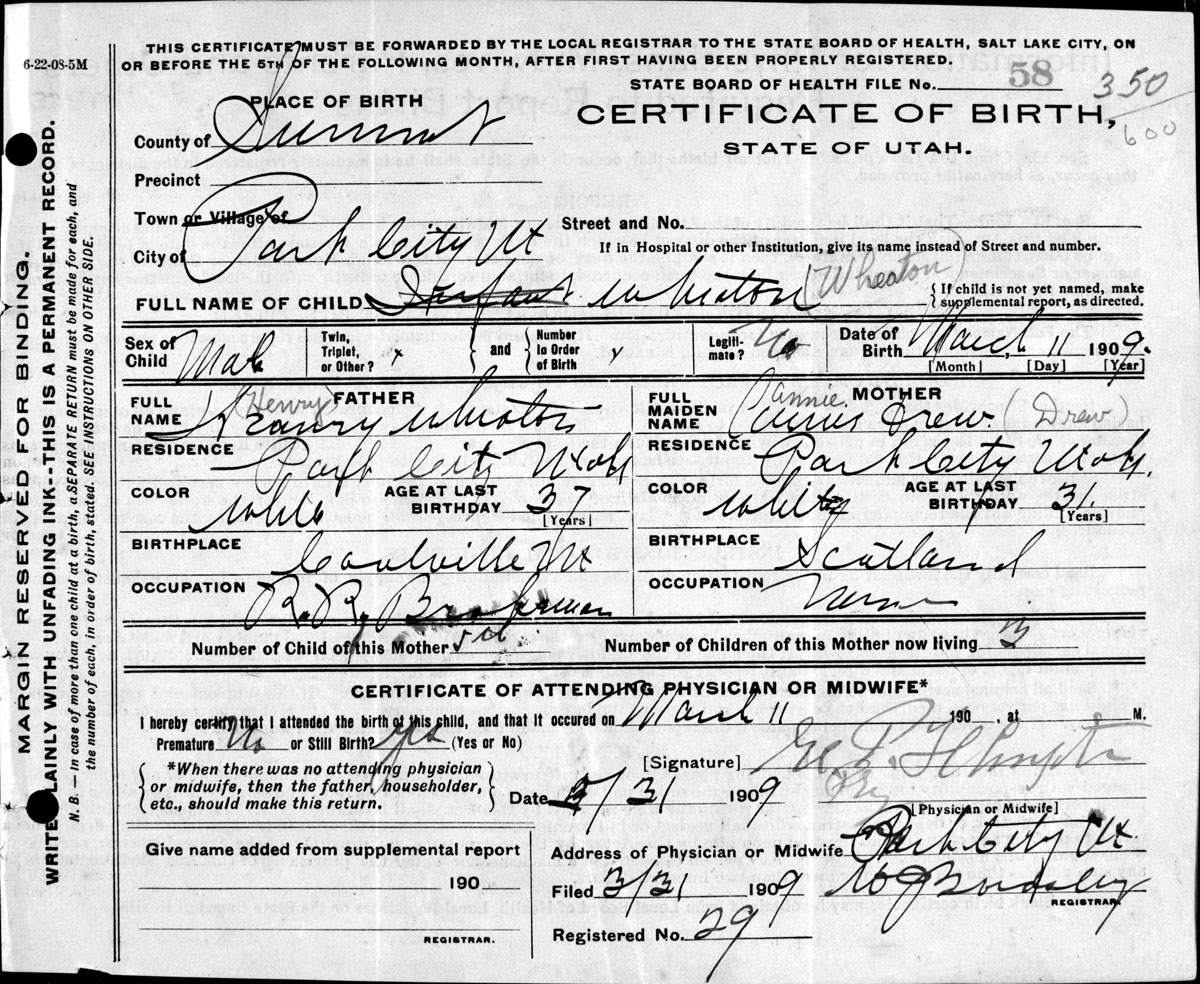 6-22-08-5M
THIS CERTIFICATE MUST BE FORWARDED BY THE LOCAL REGISTRAR TO THE STATE BOARD OF HEALTH, SALT LAKE CITY, ON
OR BEFORE THE 5TH OF THE FOLLOWING MONTH, AFTER FIRST HAVING BEEN PROPERLY REGISTERED.
STATE BOARD OF HEALTH FILE No. 58
350
600
PLACE OF BIRTH
CERTIFICATE OF BIRTH,
STATE OF UTAH.
County of Summit
Precinct
Town or Village of
Street and No.
City of Park City Ut
If in Hospital or other Institution, give its name instead of Street and number.
FULL NAME OF CHILD Infant Wheaton (Wheaton)
If child is not yet named, make
supplemental report, as directed.
Sex of Child Male
Twin, Triplet, or Other? x
and
Number in Order of Birth
Legitimate?
Date of Birth March 11 1909.
[Month] [Day] [Year]
FATHER
FULL NAME (Henry) Wheaton
RESIDENCE Park City Utah
COLOR White
AGE AT LAST BIRTHDAY 37
[Years]
BIRTHPLACE Coalville Ut
OCCUPATION R. R. Brakeman
MOTHER
FULL MAIDEN NAME Annie Drew (Drew)
RESIDENCE Park City Utah.
COLOR White
AGE AT LAST BIRTHDAY 31
[Years]
BIRTHPLACE Scotland
OCCUPATION
Number of Child of this Mother
Number of Children of this Mother now living 3
CERTIFICATE OF ATTENDING PHYSICIAN OR MIDWIFE*
I hereby certify that I attended the birth of this child, and that it occured on March 11 190 , at M.
Premature No or Still Birth? yes (Yes or No)
[Signature]
*When there was no attending physician
or midwife, then the father, householder,
etc., should make this return.
Date 3/31 1909
[Physician or Midwife]
Give name added from supplemental report
190
REGISTRAR.
Address of Physician or Midwife Park City Ut.
Filed 3/31 1909
REGISTRAR.
Registered No. 29
MARGIN RESERVED FOR BINDING.
WRITE PLAINLY WITH UNFADING INK--THIS IS A PERMANENT RECORD.
N. B. — In case of more than one child at a birth, a SEPARATE RETURN must be made for each, and
the number of each, in order of birth, stated. SEE INSTRUCTIONS ON OTHER SIDE.